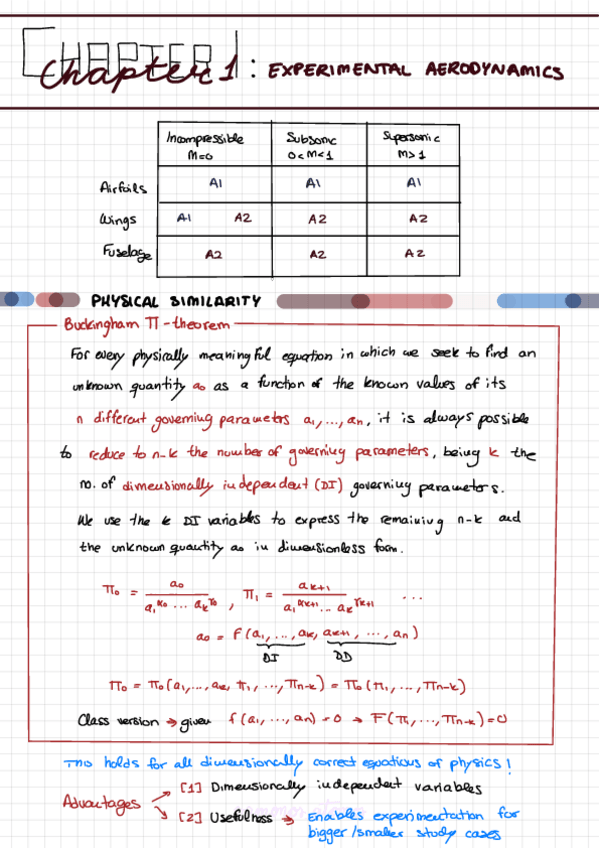 CHAPTER
Chapter 1 : EXPERIMENTAL AERODYNAMICS
Incompressible Subsonic Supersonic
M=0 0<M<1 M>1
Airfoils A1 A1 A1
Wings A1 A2 A2 A2
Fuselage A2 A2 A2
PHYSICAL SIMILARITY
Buckingham Π-theorem
For every physically meaningful equation in which we seek to find an
unknown quantity a₀ as a function of the known values of its
n different governing parameters a₁,...,aₙ, it is always possible
to reduce to n-k the number of governing parameters, being k the
no. of dimensionally independent (DI) governing parameters.
We use the k DI variables to express the remaining n-k and
the unknown quantity a₀ in dimensionless form.
Π₀ = a₀ / (a₁^α₀ ... aₖ^γ₀) , Π₁ = aₖ₊₁ / (a₁^αₖ₊₁ ... aₖ^γₖ₊₁) ...
a₀ = F(a₁,...,aₖ, aₖ₊₁,...,aₙ)
DI DD
Π₀ = Π₀(a₁,...,aₖ, Π₁,...,Πₙ₋ₖ) = Π₀(Π₁,...,Πₙ₋ₖ)
Class version → given f(a₁,...,aₙ)=0 → F(Π,...,Πₙ₋ₖ)=0
holds for all dimensionally correct equations of physics!
Advantages → [1] Dimensionally independent variables
→ [2] Usefulness → Enables experimentation for
bigger/smaller study cases